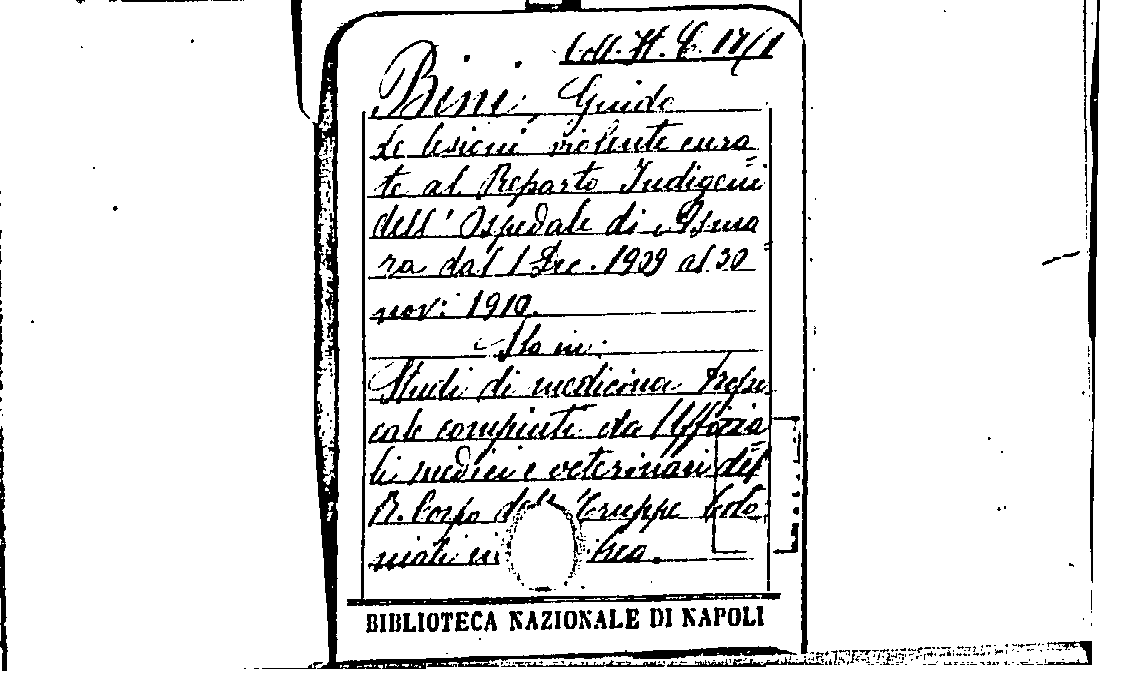 Coll. It. C. 17/1
Bini, Guido
Le lesioni violente cura
te al Reparto Indigeni
dell' Ospedale di Asma
ra dal 1 Dic. 1909 al 30
nov: 1910.
Sta in:
Studi di medicina tropi
cale compiuti da Uffizia
li medici e veterinari del
R. Corpo Truppe Colo
niali
BIBLIOTECA NAZIONALE DI NAPOLI